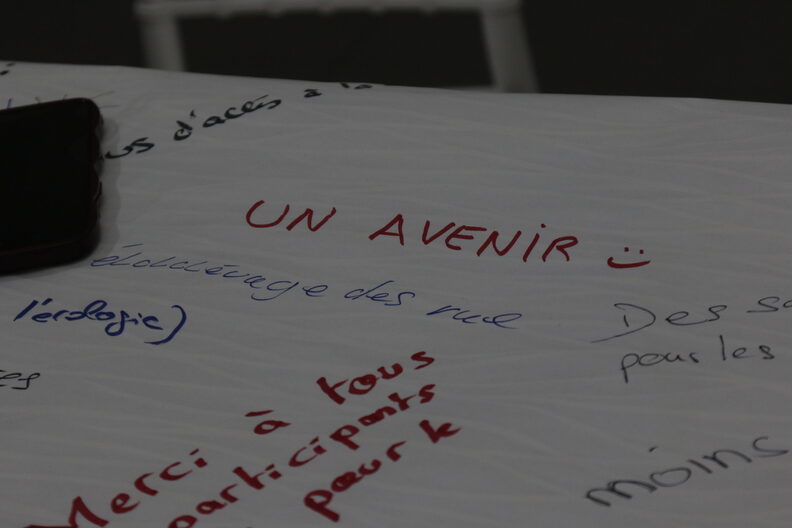 d'accés à la
UN AVENIR :)
des rue
l'écologie)
Des
pour les
Merci à tous
participants
pour le
moins